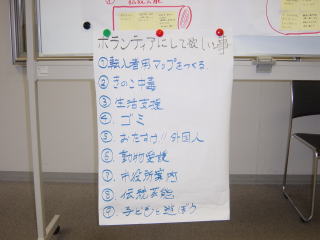 ボランティアにして欲しい事
①転入者用マップをつくる
②きのこ中毒
③生活支援
④ゴミ
⑤おたすけ!!外国人
⑥動物愛護
⑦市役所案内
⑧伝統芸能
⑨子どもと遊ぼう